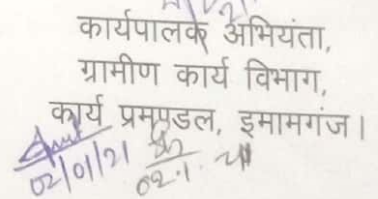 कार्यपालक अभियंता,
ग्रामीण कार्य विभाग,
कार्य प्रमण्डल, इमामगंज।
02/01/21 02.1.21